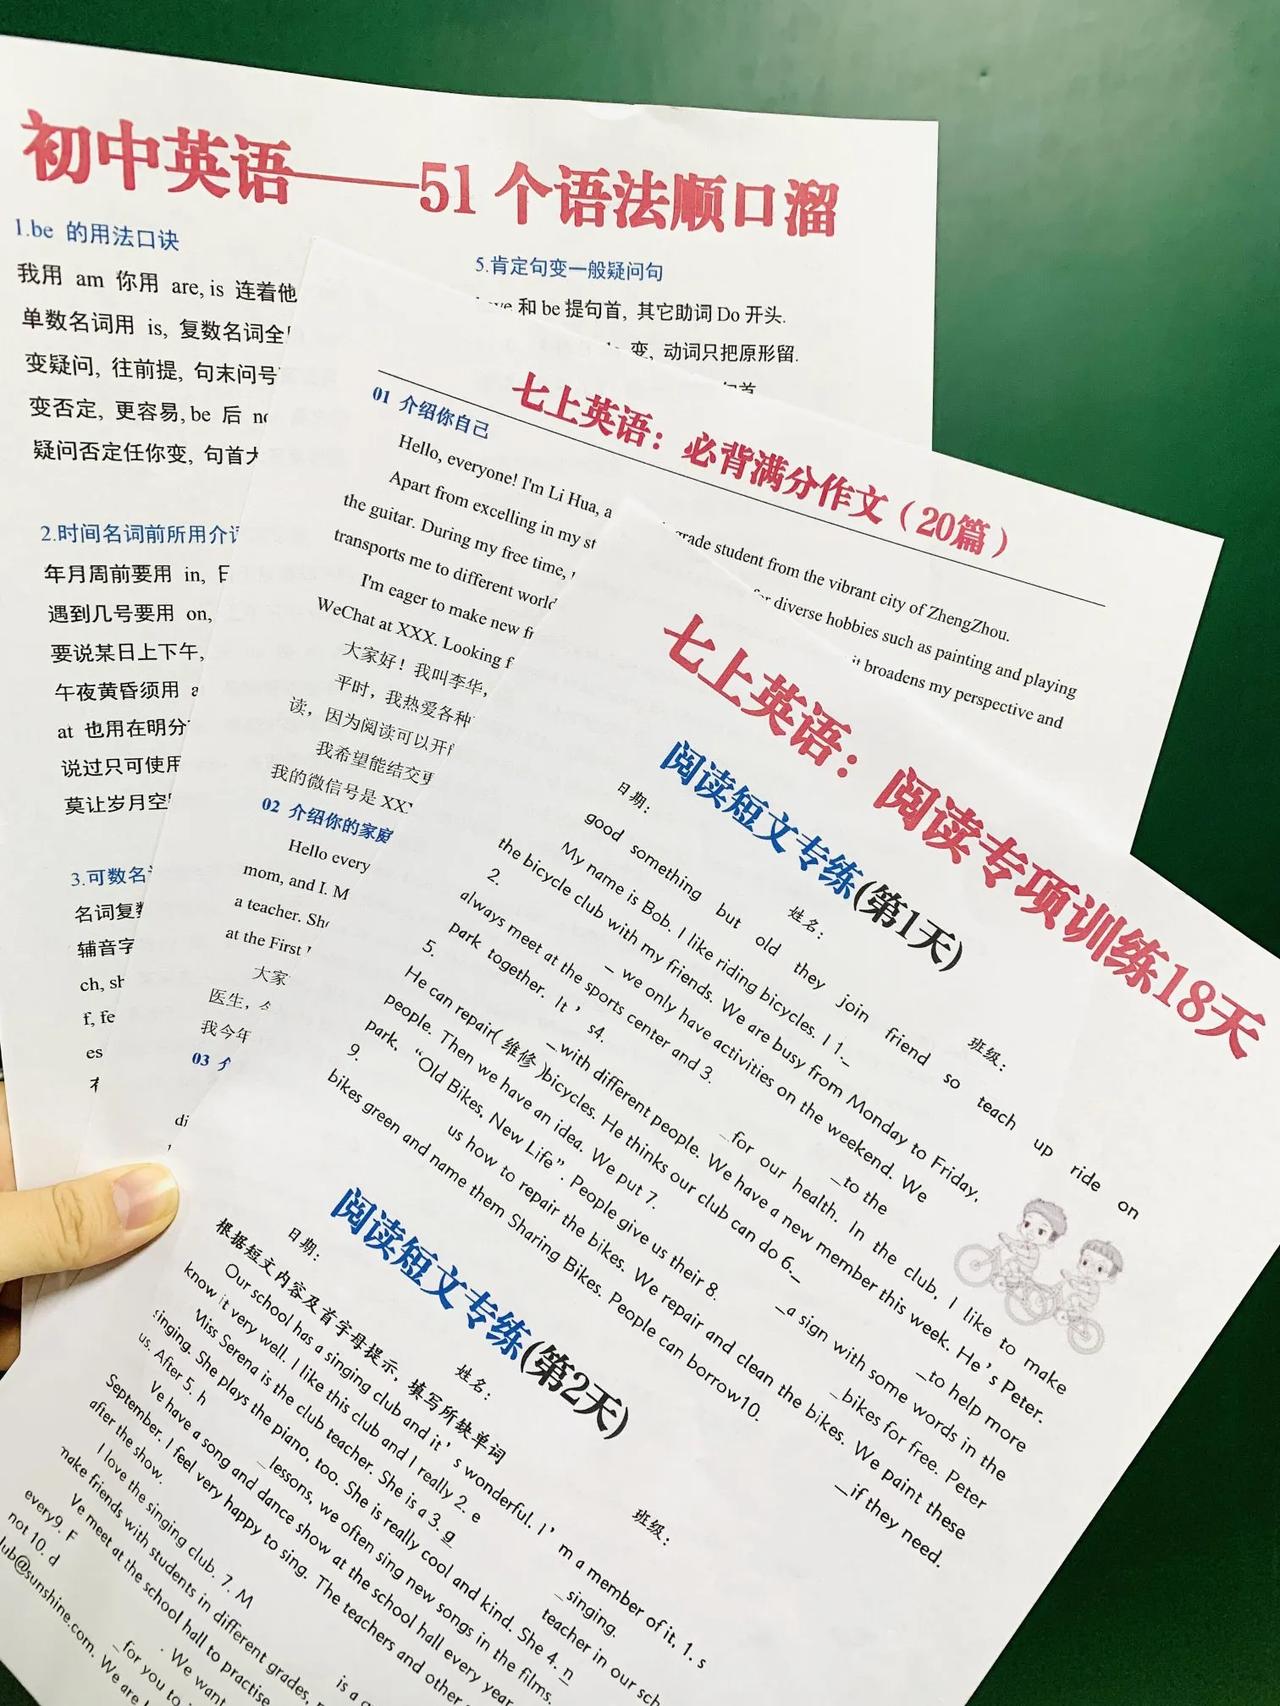 初中英语——51 个语法顺口溜
1.be 的用法口诀
我用 am 你用 are, is 连着他
单数名词用 is, 复数名词全
变疑问, 往前提, 句末问号
变否定, 更容易, be 后
疑问否定任你变, 句首
2.时间名词前所用介
年月周前要用 in,
遇到几号要用 on,
要说某日上下午,
午夜黄昏须用
at 也用在明分
说过只可使用
莫让岁月空
3.可数名
名词复
辅音字
ch, sh
f, fe
es
5.肯定句变一般疑问句
和 be 提句首, 其它助词 Do 开头.
变, 动词只把原形留.
七上英语：必背满分作文（20篇）
01 介绍你自己
Hello, everyone! I'm Li Hua, a grade student from the vibrant city of ZhengZhou.
Apart from excelling in my st for diverse hobbies such as painting and playing
the guitar. During my free time, it broadens my perspective and
transports me to different world
I'm eager to make new
WeChat at XXX. Looking
大家好！我叫李华，
平时，我热爱各种
读，因为阅读可以开
我希望能结交更
我的微信号是 XX
02 介绍你的家庭
Hello every
mom, and I. M
a teacher. She
at the First
大家
医生，
我今年
03
di
七上英语：阅读专项训练18天
阅读短文专练(第1天)
日期： 姓名： 班级：
good something but old they join friend so teach up ride on
My name is Bob. I like riding bicycles. I 1._
the bicycle club with my friends. We are busy from Monday to Friday,
2. _ we only have activities on the weekend. We
always meet at the sports center and 3. _to the
park together. It's4. _for our health. In the club, I like to make
5. _with different people. We have a new member this week. He's Peter.
He can repair(维修)bicycles. He thinks our club can do 6._ _to help more
people. Then we have an idea. We put 7. _a sign with some words in the
park, "Old Bikes, New Life". People give us their 8. _bikes for free. Peter
9. us how to repair the bikes. We repair and clean the bikes. We paint these
bikes green and name them Sharing Bikes. People can borrow10. _if they need.
阅读短文专练(第2天)
日期： 姓名： 班级：
根据短文内容及首字母提示，填写所缺单词
Our school has a singing club and it's wonderful. I'm a member of it. 1. s
know it very well. I like this club and I really 2. e _singing.
Miss Serena is the club teacher. She is a 3. g teacher in our sch
singing. She plays the piano, too. She is really cool and kind. She 4. n
us. After 5. h _lessons, we often sing new songs in the films.
Ve have a song and dance show at the school hall every year
September. I feel very happy to sing. The teachers and other
after the show.
I love the singing club. 7. M is a
make friends with students in different grades,
Ve meet at the school hall to practise
every9. F . We want
not 10. d _for you to
lub@sunshine.com. We are